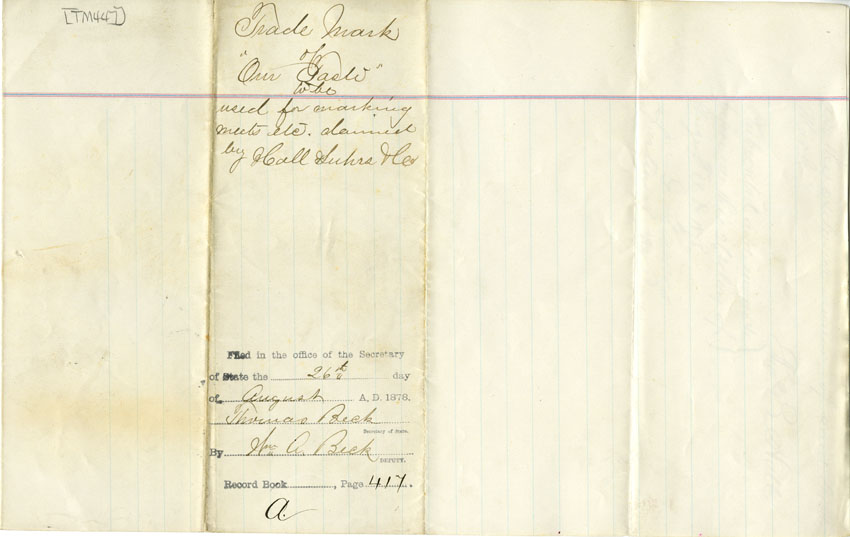 [TM447]
Trade Mark
of
"Our Taste"
to be
used for marking
meets etc. claimed
by Hall Luhrs & Co
Filed in the office of the Secretary
of State the 26th day
of August A. D. 1878.
Thomas Beck
Secretary of State.
By Wm A. Beck
DEPUTY.
Record Book , Page 417.
A